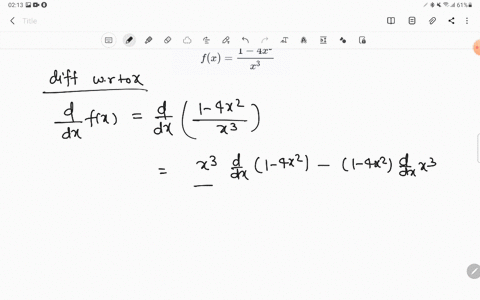 02:13
61%
Title
f(x) = \frac{1 - 4x^2}{x^3}
diff w.r.to x
\frac{d}{dx} f(x) = \frac{d}{dx} \left( \frac{1-4x^2}{x^3} \right)
= x^3 \frac{d}{dx} (1-4x^2) - (1-4x^2) \frac{d}{dx} x^3